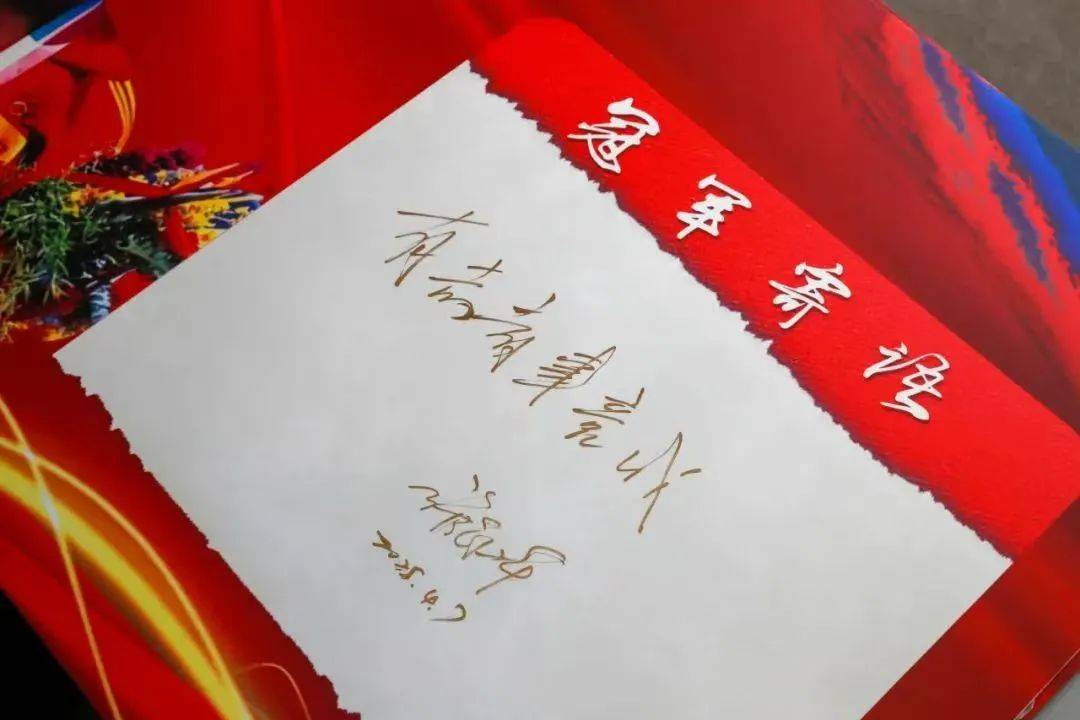 冠军寄语
有志者事竟成
2025.4.7